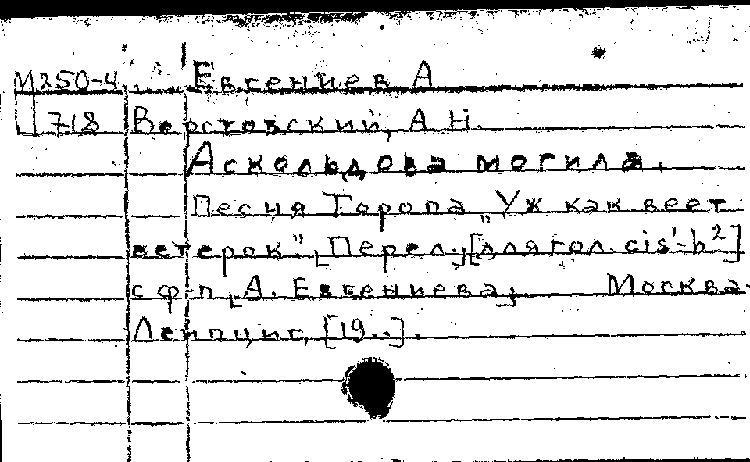 М250-4 Евгениев А
718 Верстовский, А Н.
Аскольдова могила.
Песня Торопа „Уж как веет
ветерок", [Перел.,] [для гол. cis'-h²]
с ф-п [А. Евгениева,] Москва-
Лейпциг, [19..].